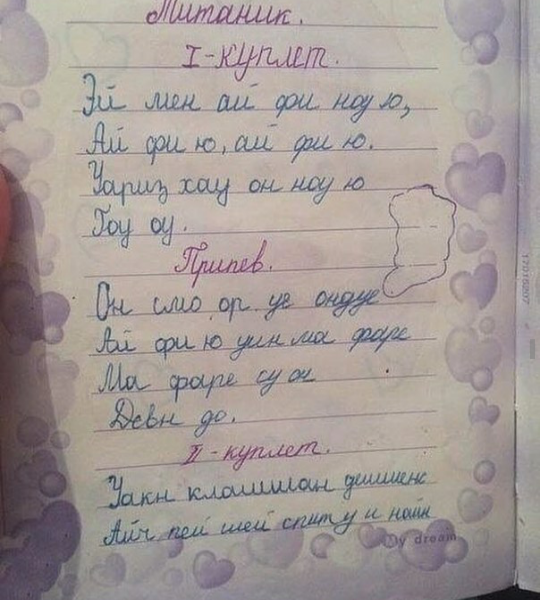 Титаник.
I-куплет.
Эй мен ай фи ноу ю,
Ай фи ю, ай фи ю.
Уариз хау он ноу ю
Гоу оу.
Припев.
Он смо ор уе ондуе
Ай фи ю уин ма фаре
Ма фаре су он
Девн до.
II-куплет.
Уакн клашшан дешшенс
Айч пей шей спит у и найн
My dream
17016207